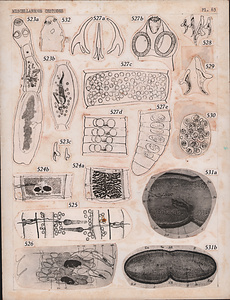 MISCELLANEOUS CESTODES PL. 55
523a
532
527a
527b
528
523b
527c
529
527d
527e
530
523c
524b
524a
531a
525
526
531b